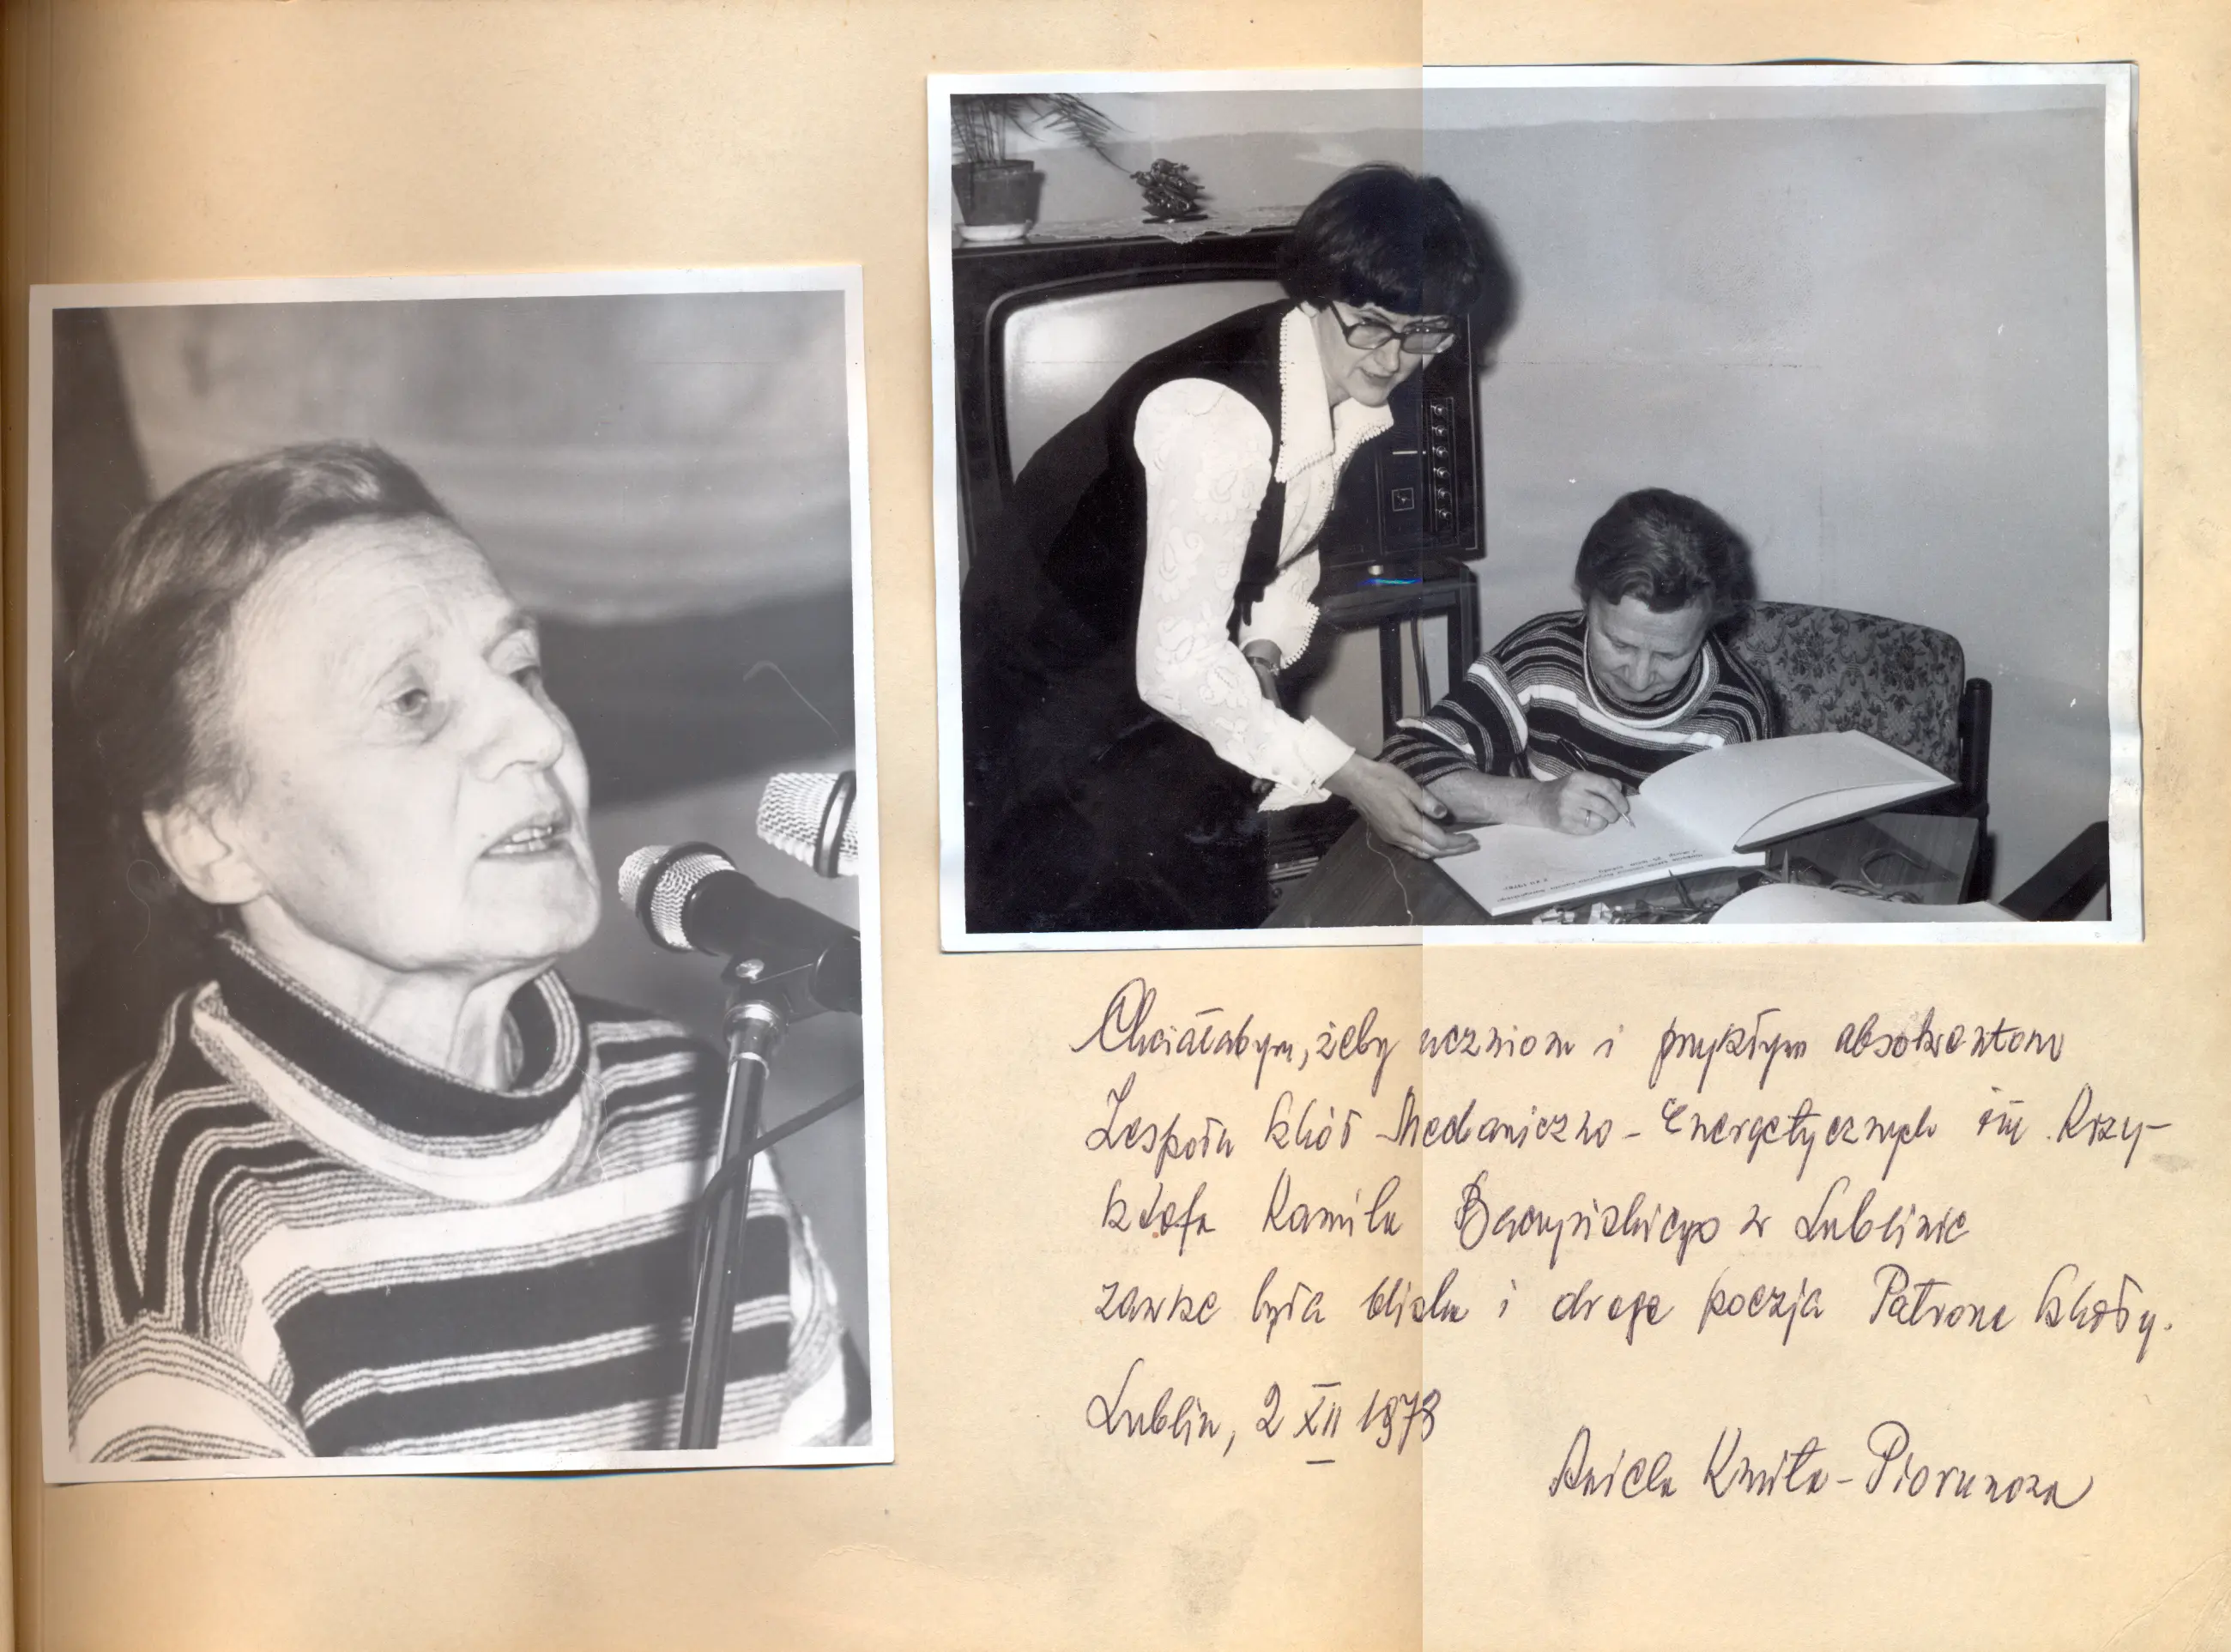 Chciałabym, żeby uczniom i przyszłym absolwentom
Zespołu Szkół Mechaniczno-Energetycznych im. Krzy-
sztofa Kamila Baczyńskiego w Lublinie
zawsze była bliska i droga poezja Patrona Szkoły.
Lublin, 2 XII 1978
Aniela Kmita-Piorunowa